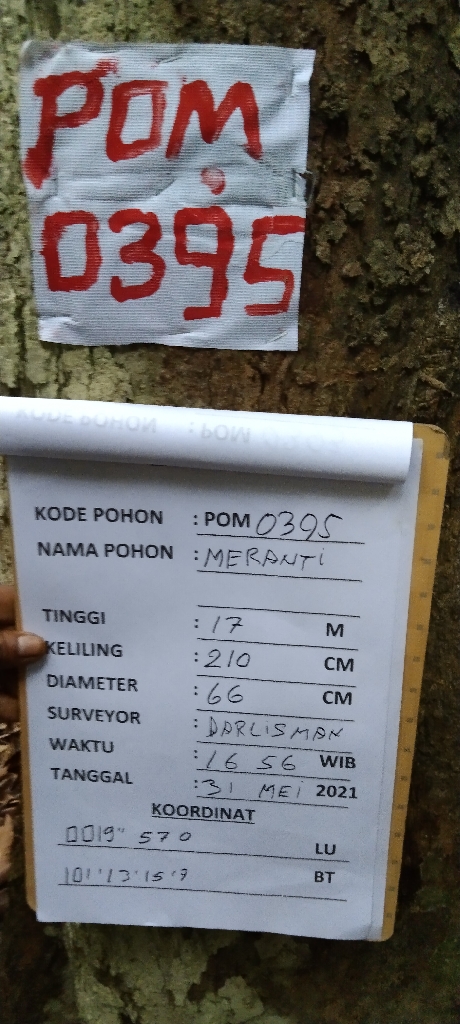 POM
0395
KODE POHON : POM 0395
NAMA POHON : MERANTI
TINGGI : 17 M
KELILING : 210 CM
DIAMETER : 66 CM
SURVEYOR : DARLISMAN
WAKTU : 16 56 WIB
TANGGAL : 31 MEI 2021
KOORDINAT
0019" 570 LU
101'13'15'9 BT